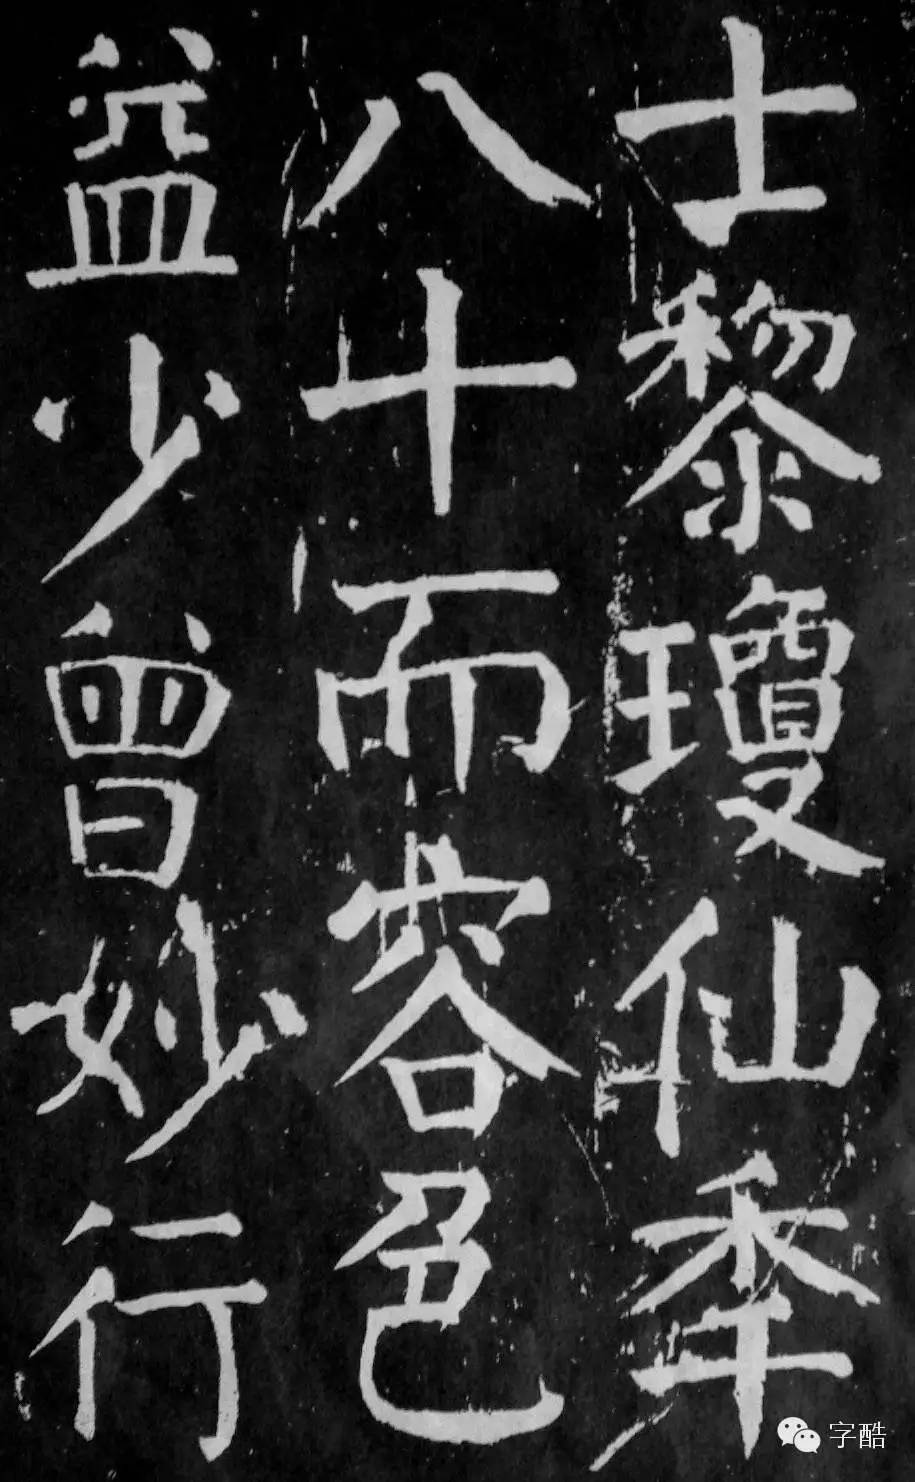 士黎瓊仙秊
八十而容色
益少曾妙行
字酷